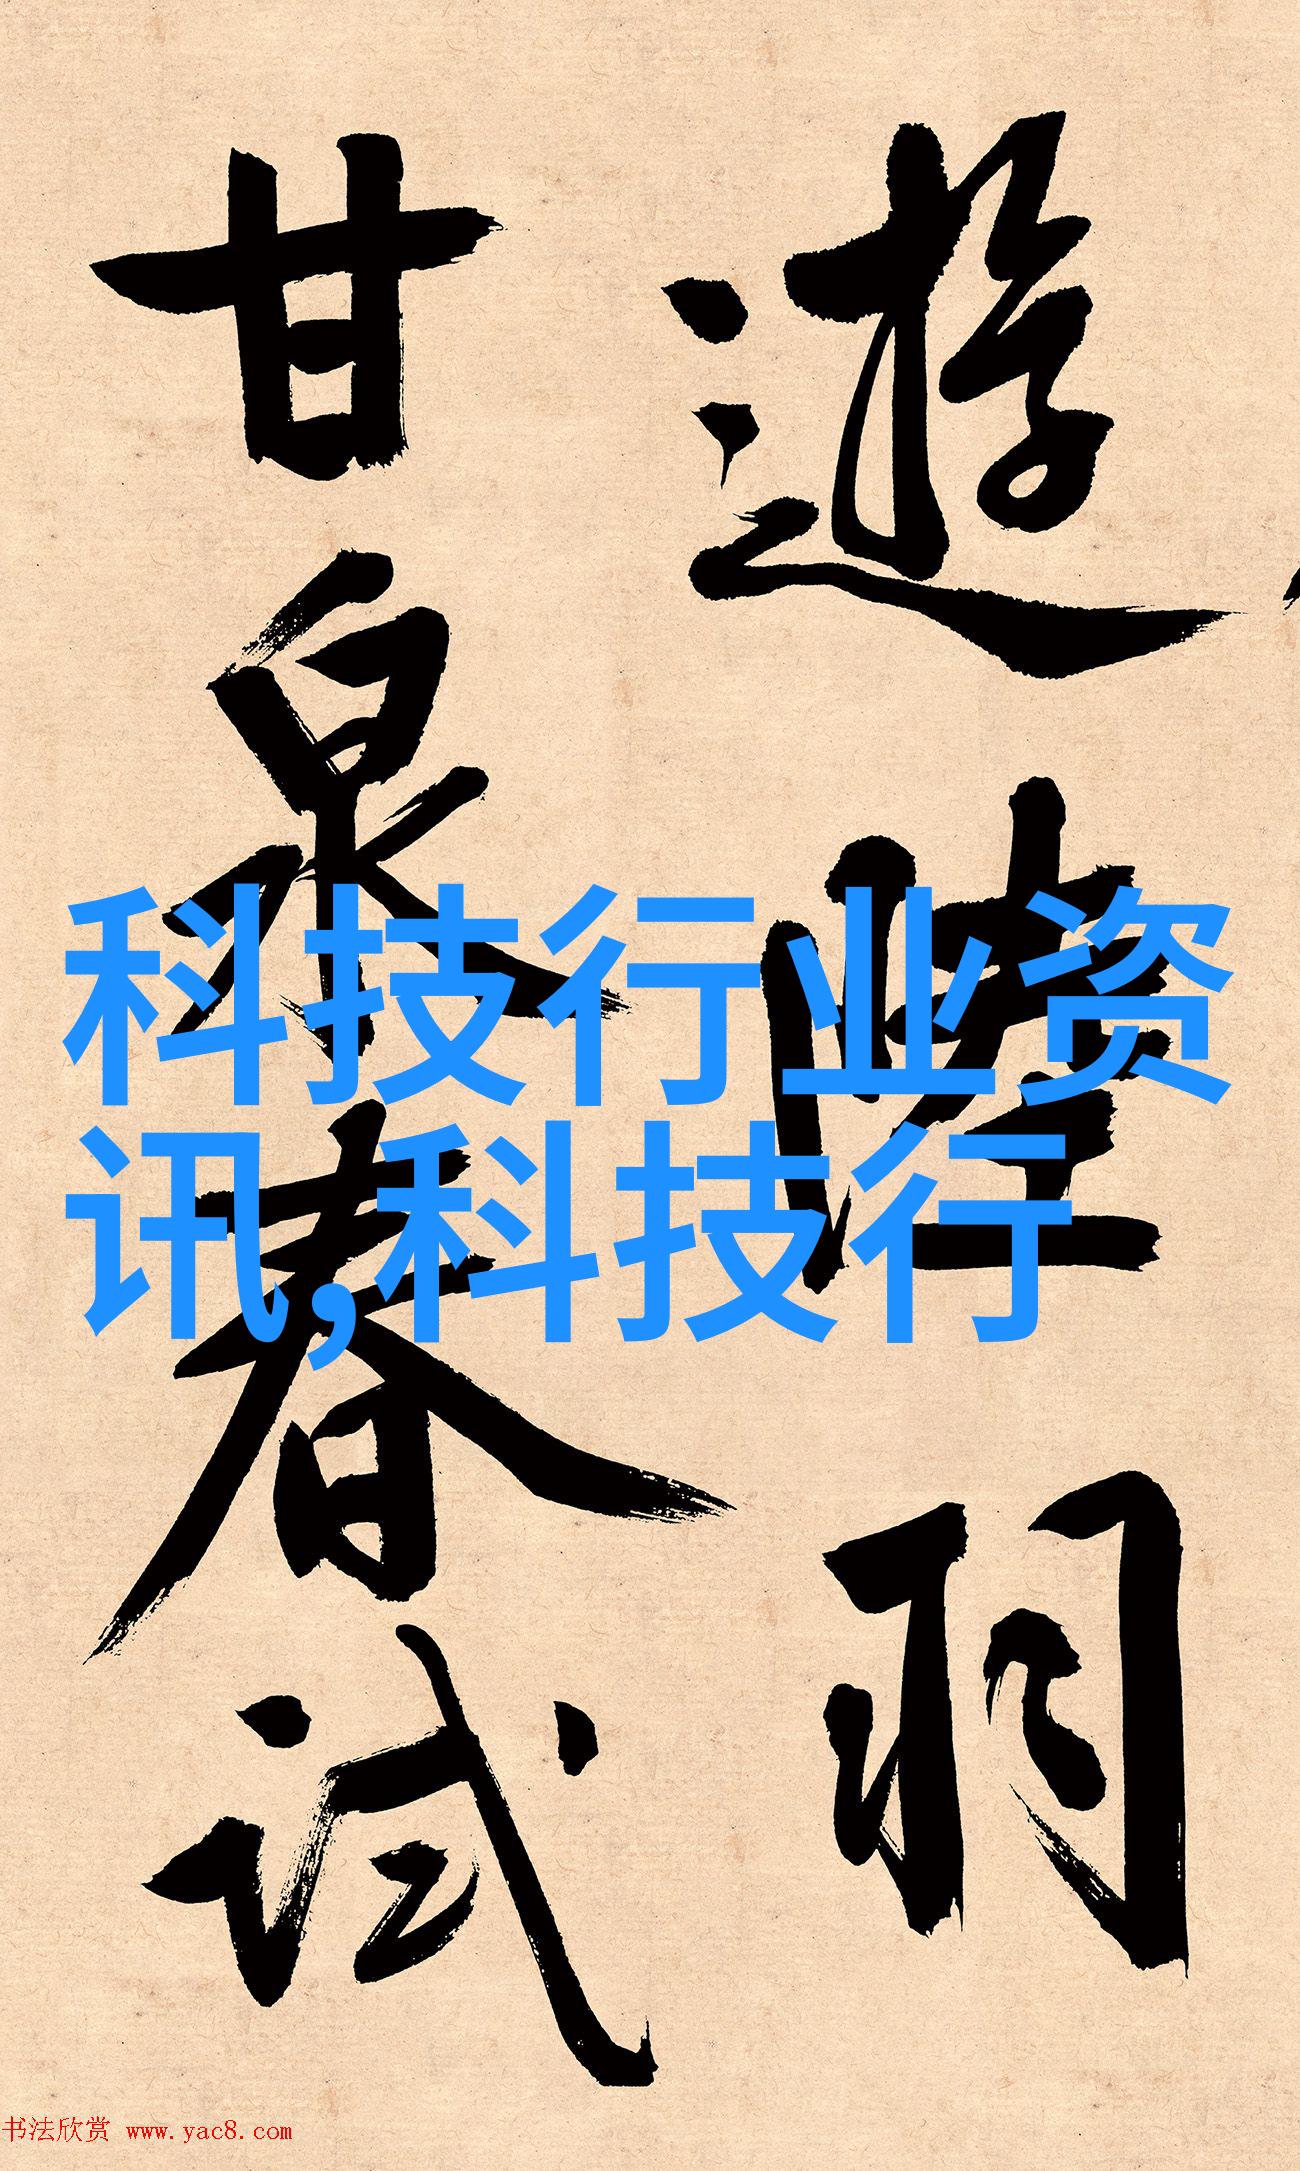 遊陸羽
甘泉春试
科技行业资
讯,科技行
书法欣赏 www.yac8.com